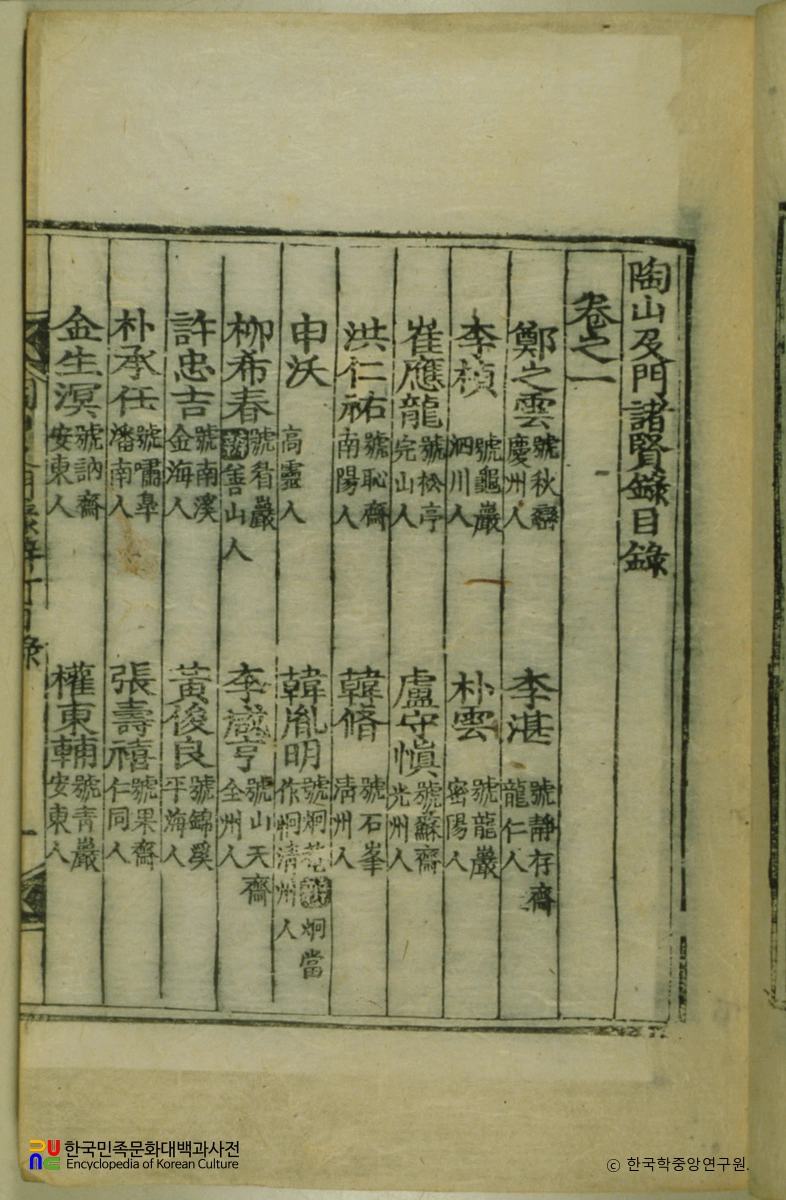 陶山及門諸賢錄目錄
卷之一
鄭之雲 號秋巒 慶州人 李湛 號靜存齋 龍仁人
李楨 號龜巖 泗川人 朴雲 號龍巖 密陽人
崔應龍 號松亭 完山人 盧守愼 號蘇齋 光州人
洪仁祐 號恥齋 南陽人 韓脩 號石峯 淸州人
申沃 高靈人 韓胤明 號炯菴 炯當作恫 淸州人
柳希春 號眉巖 善山人 李 亨 號山天齋 全州人
許忠吉 號南溪 金海人 黃俊良 號錦溪 平海人
朴承任 號嘯皐 潘南人 張壽禧 號果齋 仁同人
金生溟 號訥齋 安東人 權東輔 號靑巖 安東人
한국민족문화대백과사전
Encyclopedia of Korean Culture
© 한국학중앙연구원.